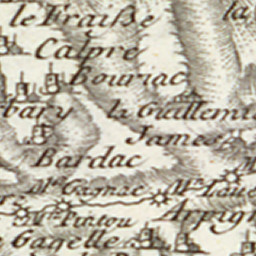 le Fraisse
la
Calpre
Bouriac
bary
la Guillemi
James
Bardac
Mln Gagnac
Arpign
Gagelle